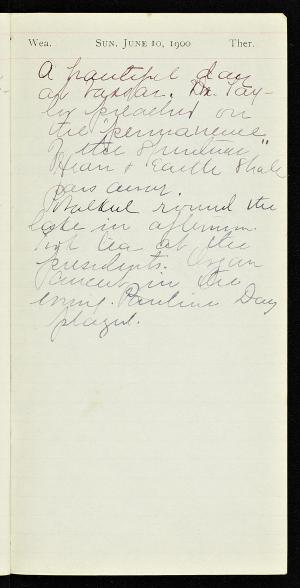 Wea. SUN. JUNE 10, 1900 Ther.
A beautiful day
at Vassar. Dr. Tay-
lor preached on
the "permanence
of the Spiritual"
Heav & Earth Shall
pass away.
Walked round the
lake in afternoon
Took tea at the
presidents. Organ
concert in the
evning. Pauline Day
played.